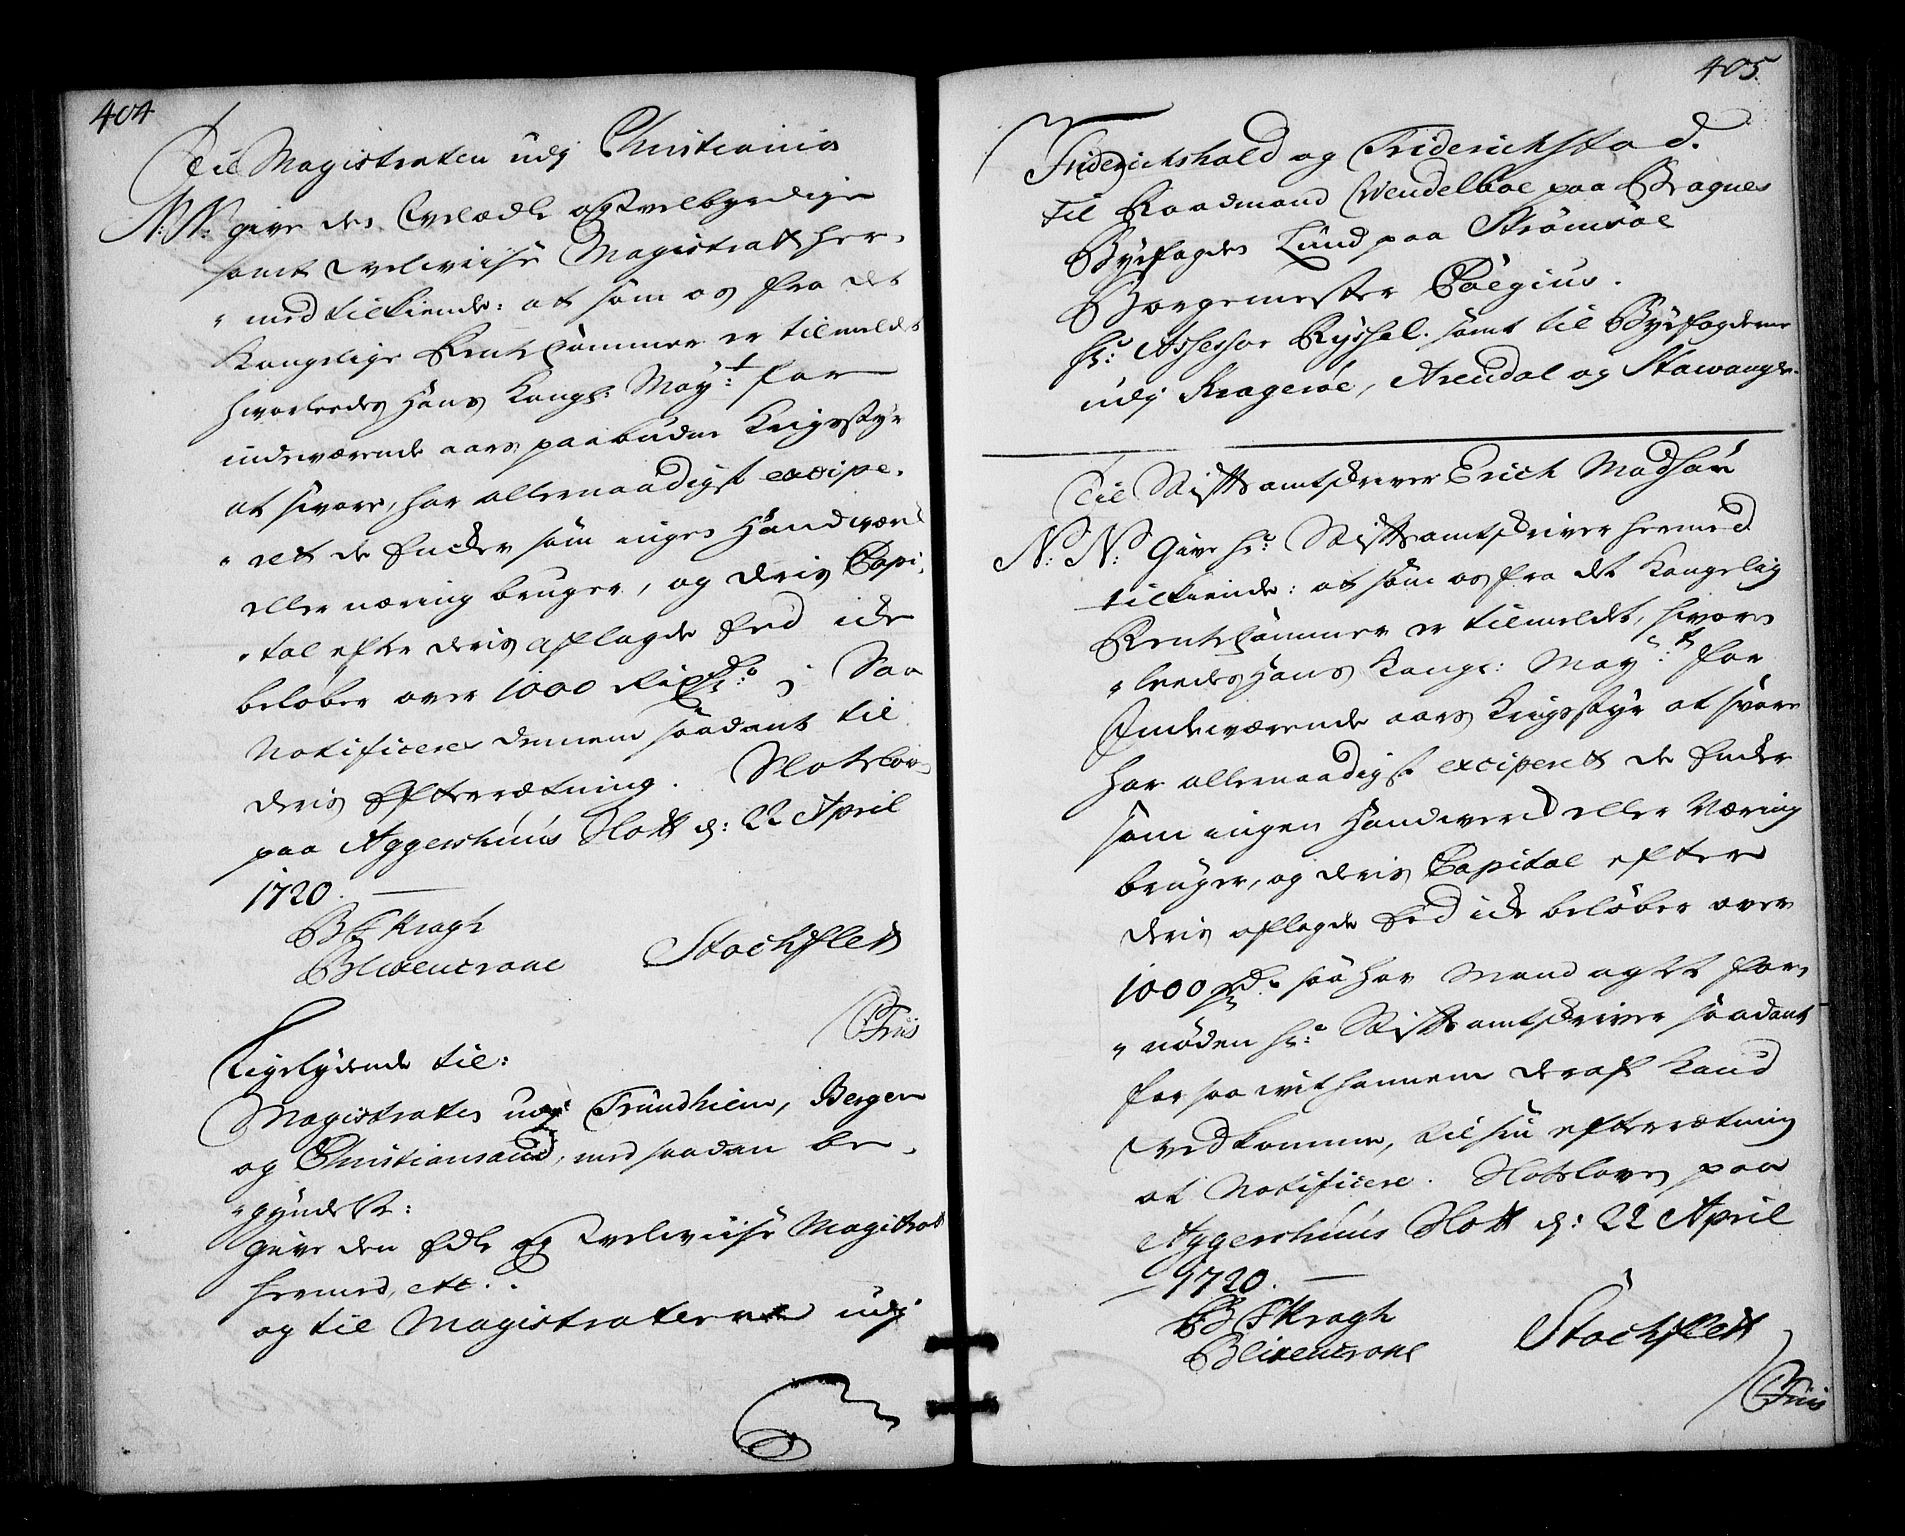 404
Til Magistraten udj Christiania
N: N: give den Velædle og Velbyrdige
samt Velviise Magistrat her,
" med tilkiende: at som os fra det
Kongelige Rentekammer er tilmeldet
hvorleedes Hans Kongl: May:t for
indeværende aars paabudne Krigsstyr
at svare, har allernaadigst excipe,
" ret de Encker som ingen Handværk
eller næring bruger, og deris Capi,
" tal efter deris aflagde Eed icke
beløber over 1000 Rixdr:; Saa
Notificeres dennem saadant til
deris Efterrætning. Slotslov
paa Aggershuus Slott d: 22 April
1720.
B F Kragh
Blixencrone Stochflett
C Friis
Ligelydende til:
Magistraten udj Trundhiem, Bergen
og Christiansand, med saadan be,
" gyndelse:
give den Edle og Velviise Magistrat
hermed, etc:
og til Magistraterne udj
405.
Friderichshald og Friderichstad.
til Raadmand Wendelboe paa Bragnes
Byefogden Lund paa Strømsøe
Borgemester Pöegius.
Hr: Assessor Ryssel. samt til Byefogderne
udj Kragerøe, Arendal og Stawanger.
Til Stiftsamtskriver Erich Madsøn
N: N: Give Hr: Stiftsamtskriver hermed
tilkiende: at som os fra det Kongelig
Rentekammer er tilmeldet, hvore
" leedes Hans Kongl: May:t for
Indeværende aars Krigsstyr at svare
har allernaadigst exciperet de Encker
som ingen Handverck eller Næring
bruger, og deris Capital efter
deris aflagde Eed icke beløber over
1000 rd. saa har Mand agtet for,
" nøden Hr: Stiftsamtskriver saadant
for saa vit hannem deraf kand
vedkomme, til sin efterrætning
at Notificere. Slotsloven paa
Aggershuus Slott d: 22 April
1720.
B F Kragh
Blixencrone Stochflett
C Friis